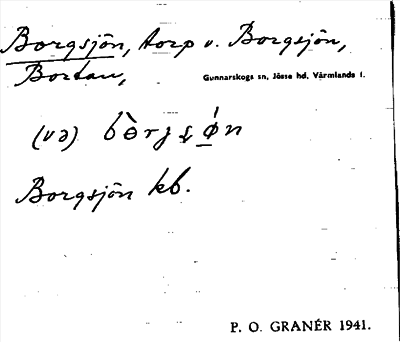 Borgsjön, torp v. Borgsjön,
Bortan,
Gunnarskogs sn, Jösse hd, Värmlands l.
(və) bòrjsǿn
Borgsjön kb.
P. O. GRANÉR 1941.